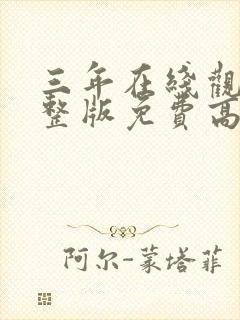 三年在线觀
整版免费高
阿尔-蒙塔菲